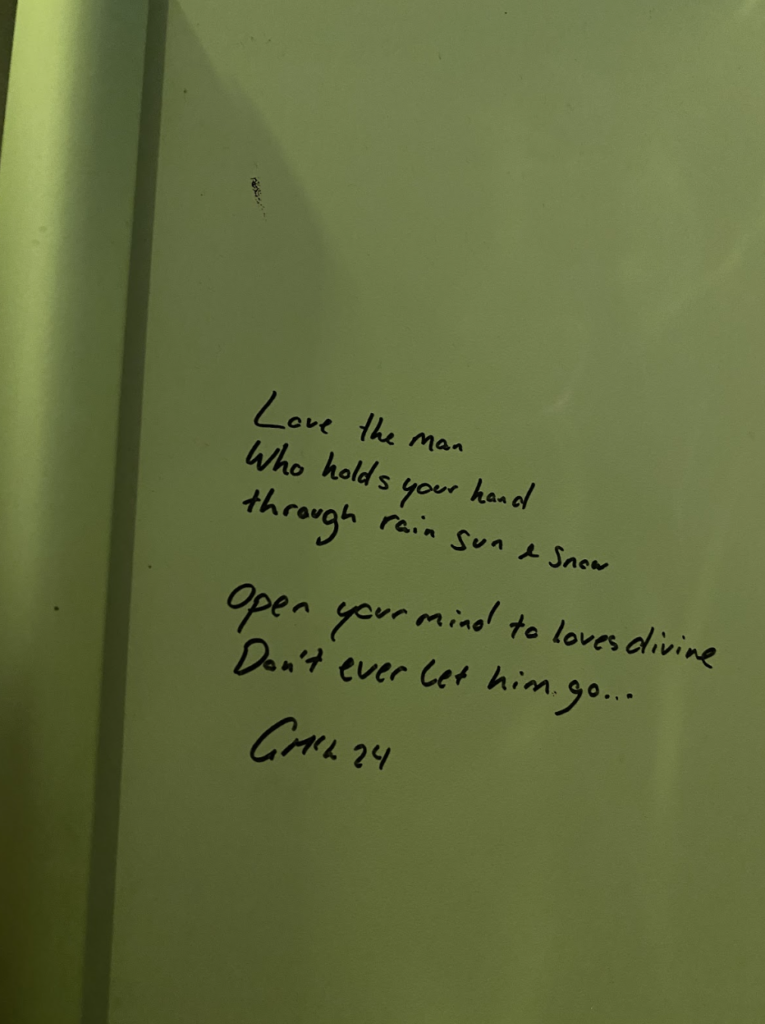 Love the man
Who holds your hand
through rain sun & snow
Open your mind to loves divine
Don't ever let him go...
24